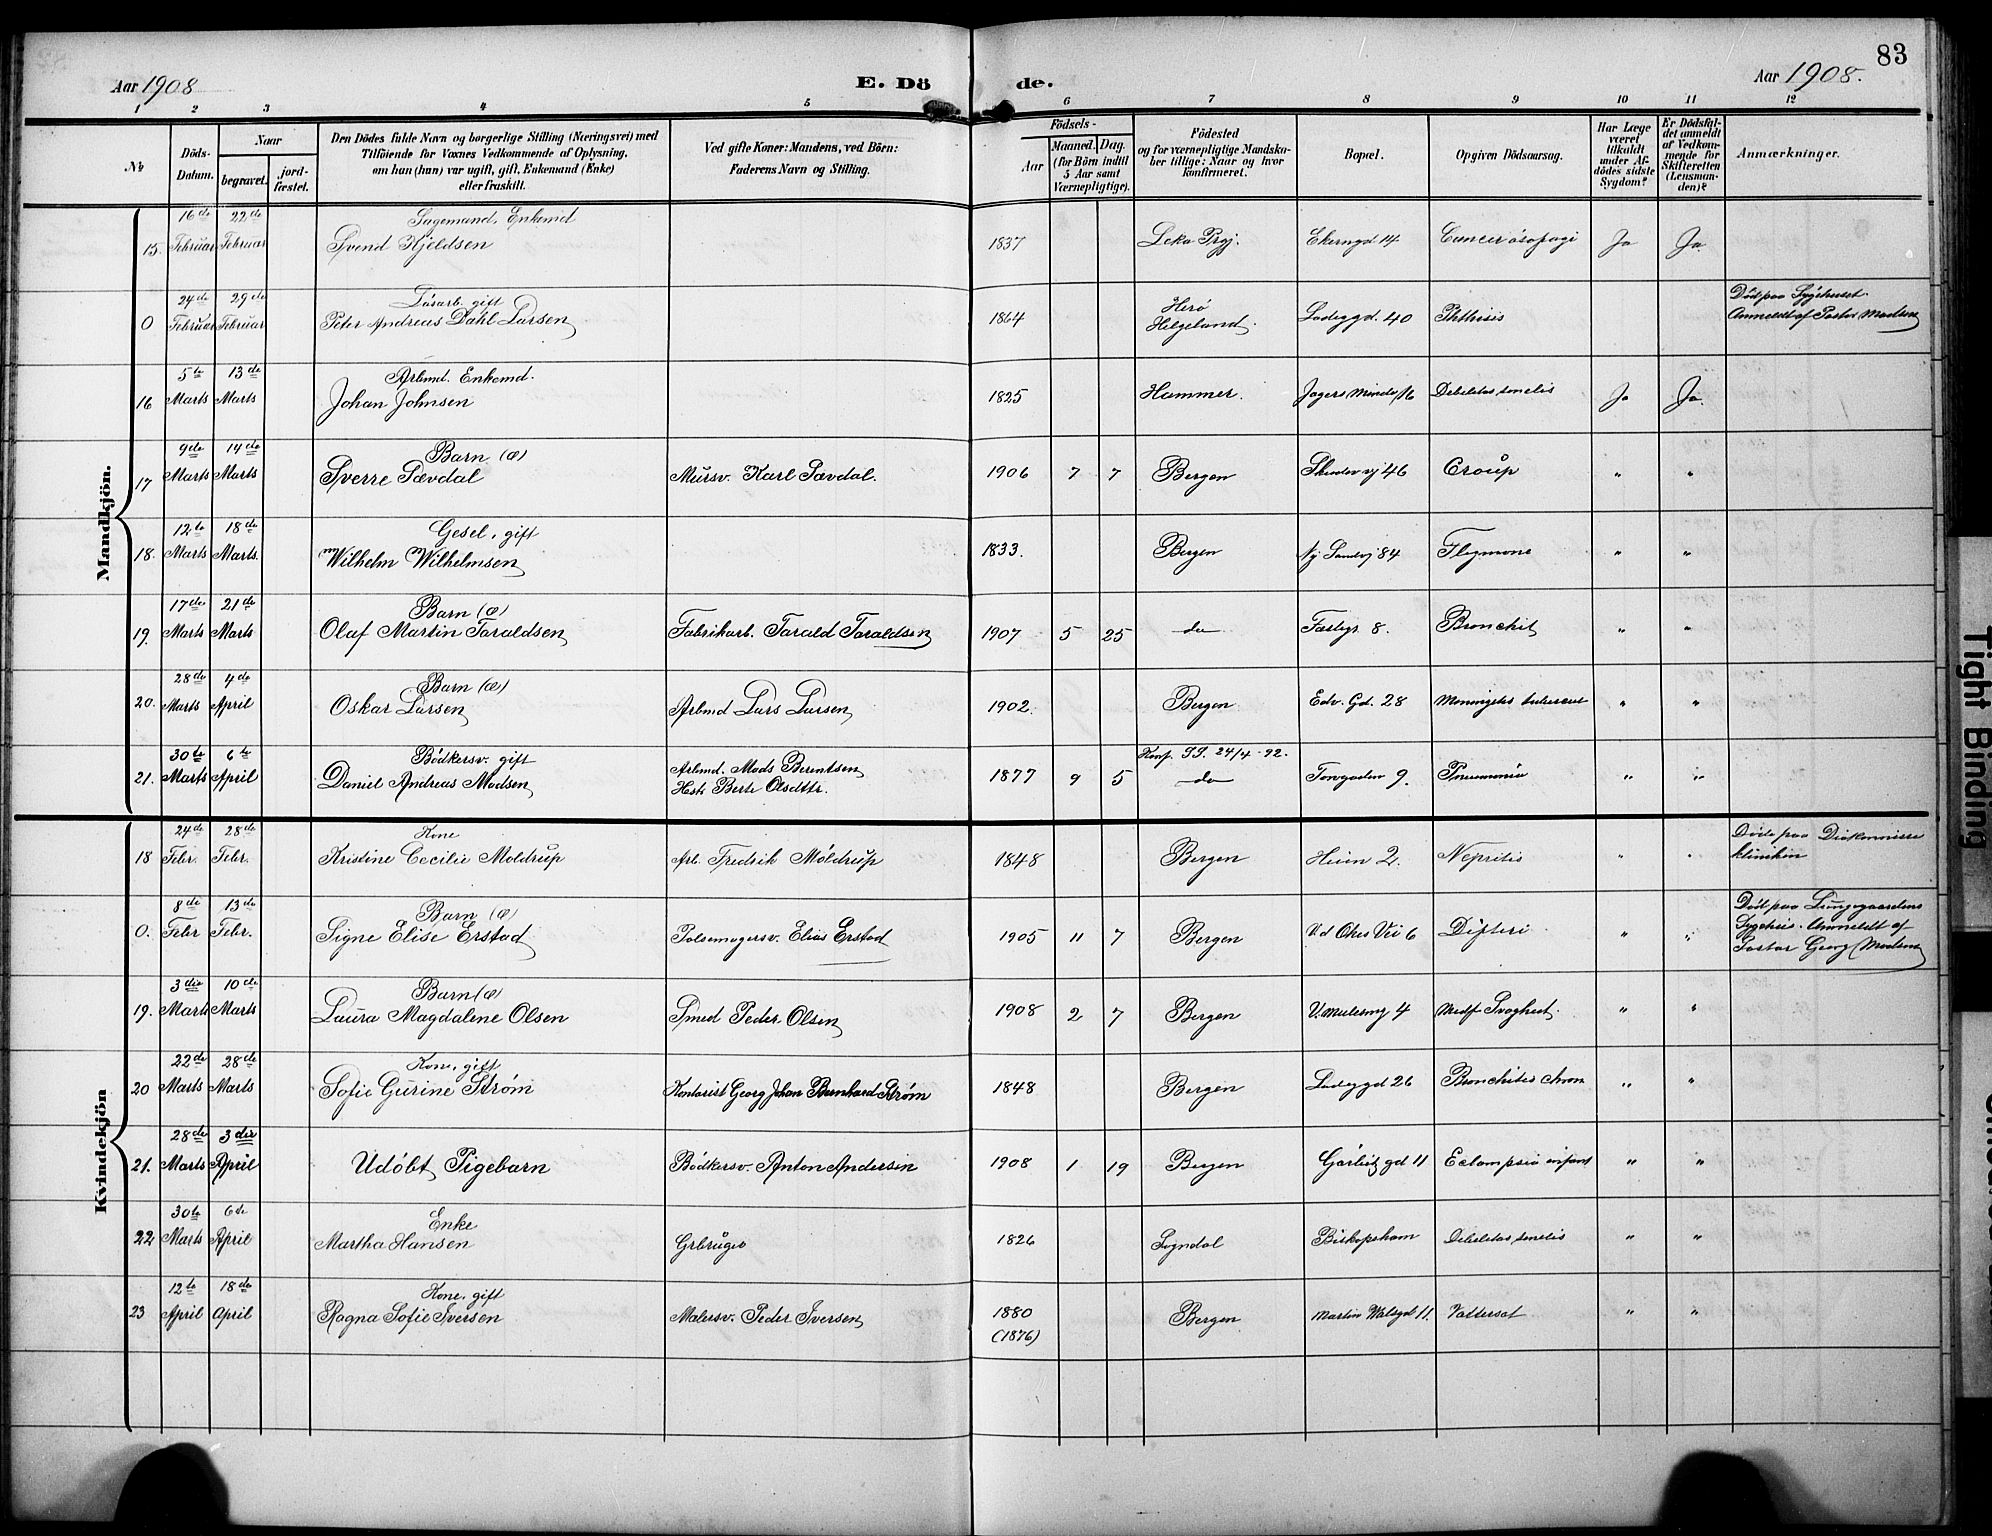 83
Aar 1908
E. Dö de.
Aar 1908.
1 2 3 4 5 6 7 8 9 10 11 12
No
Döds-Datum.
Naar
begravet.
jord-fæstet.
Den Dödes fulde Navn og borgerlige Stilling (Næringsvei) med
Tilföiende for Voxnes Vedkommende af Oplysning,
om han (hun) var ugift, gift, Enkemand (Enke)
eller fraskilt.
Ved gifte Koner: Mandens, ved Börn:
Faderens Navn og Stilling.
Födsels-
Aar
Maaned. Dag.
(for Börn indtil
5 Aar samt
Værnepligtige).
Födested
og for værnepligtige Mandska-
ber tillige: Naar og hvor
konfirmeret.
Bopæl.
Opgiven Dödsaarsag.
Har Læge
været
tilkaldt
under Af-
dödes sidste
Sygdom?
Er Dödsfal-
det anmeldt
af Vedkom-
mende for
Skifteretten
(Lensman-
den)?
Anmærkninger.
Mandkjön.
16de 22de Sagemand, Enkemd
15. Februar Februar Svend Kjeldsen 1837 Leka Prgj. Ekerngd 14 Cancer ösofagi Ja Ja
24de 29de Lösarb. gift
0 Februar Februar Peter Andreas Dahl Larsen 1864 Herö Helgeland. Ladeggd. 40 Phthisis Död paa Sygehuset. Anmeldt af Pastor Madsen
5te 13de Arbmd. Enkemd.
16 Marts Marts Johan Johnsen 1825 Hammer. Jagers Minde 16 Debelitas senelis Ja Ja.
9de 14de Barn (æ)
17 Marts Marts Sverre Sævdal Mursv. Karl Sævdal. 1906 7 7 Bergen 46 Croup " "
12te 18de Gesel, gift
18. Marts Marts. Wilhelm Wilhelmsen 1833. Bergen Ny Sandvj 84 Flegmone " "
17de 21de Barn (æ)
19. Marts Marts Olaf Martin Taraldsen Fabrikarb. Tarald Taraldsen 1907 5 25 do 8. Bronchit " "
28de 4de Barn (æ)
20. Marts April Oskar Larsen Arbmd Lars Larsen 1902. Bergen Edv. Gd. 28 " "
30te 6te Bödkersv. gift Konf. 24/4-92.
21. Marts April Daniel Andreas Madsen Arbmd. Mads Berentsen Hstr Berte Olsdttr. 1877 9 5 do Torvgaden 9. Pneumonia " "
Kvindekjön
24de 28de Kone
18 Febr. Febr. Kristine Cecilie Moldrup Arb. Fredrik Möldrup 1848 Bergen Heien 2. Nepritis " " Döde paa Diakonnisse kliniken
8de 13de Barn (æ)
0. Febr Febr. Signe Elise Erstad Polsemagersv. Elias Erstad 1905 11 7 Bergen Vei 6 Difteri " " Död paa Lungegaardens Sygehus. Anmeldt af Pastor Georg Madsen
3die 10de Barn (æ)
19. Marts Marts Laura Magdalene Olsen Smed Peder Olsen 1908 2 7 Bergen V. Mulesmg 4 Medf Svaghed. " "
22de 28de Kone, gift
20 Marts Marts Sofie Gurine Strøm Kontorist Georg Johan Bernhard Strøm 1848 Bergen Ladeggd 26 Bronchites chron " "
28de 3die
21. Marts April Udöbt Pigebarn Bödkersv. Anton Andersen 1908 1 19 Bergen Görbitz gd 11 Eclampsia infant " "
30te 6te Enke
22 Marts April Martha Hansen Grbruger 1826 Sogndal Biskopsham Debelitas senelis " "
12te 18de Kone, gift
23 April April Ragna Sofie Iversen Malersv. Peder Iversen 1880 (1876) Bergen Martin Vatsgd 11. Vattersot " "
Tight Binding